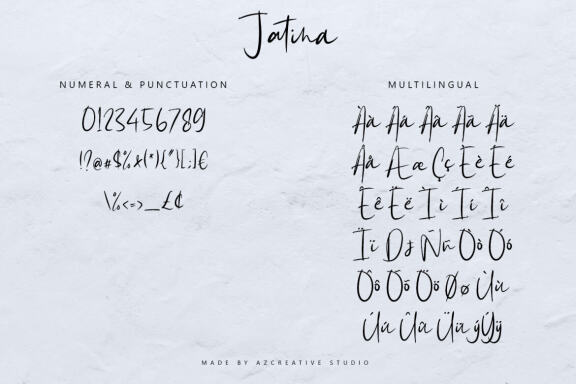 Jatina
NUMERAL & PUNCTUATION
0123456789
!?@#$%&(*){"}[;]€
\%<=>_£¢
MULTILINGUAL
Àà Áá Ââ Ãã Ää
Åå Ææ Çç Èè Éé
Êê Ëë Ìì Íí Îî
Ïï Ññ Òò Óó
Ôô Õõ Öö Øø Ùù
Úú Ûû Üü ýÝÿ
MADE BY AZCREATIVE STUDIO